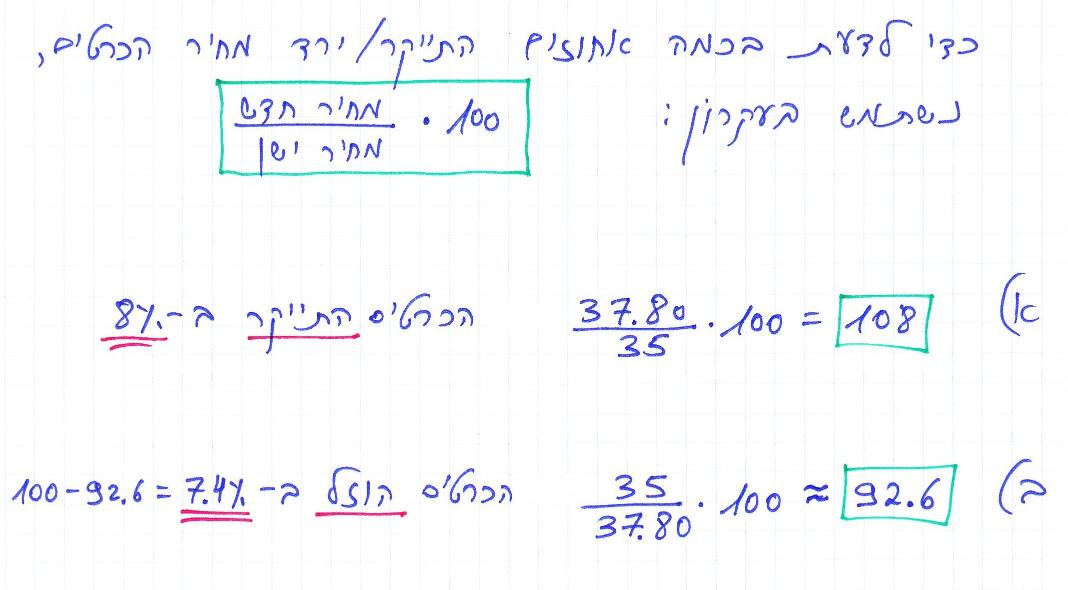 כדי לדעת בכמה אחוזים התייקר/ירד מחיר הכרטיס,
נשתמש בעקרון:
מחיר חדש / מחיר ישן · 100
א) 37.80/35 · 100 = 108 הכרטיס התייקר ב-8%
ב) 35/37.80 · 100 ≈ 92.6 הכרטיס הוזל ב-100-92.6=7.4%